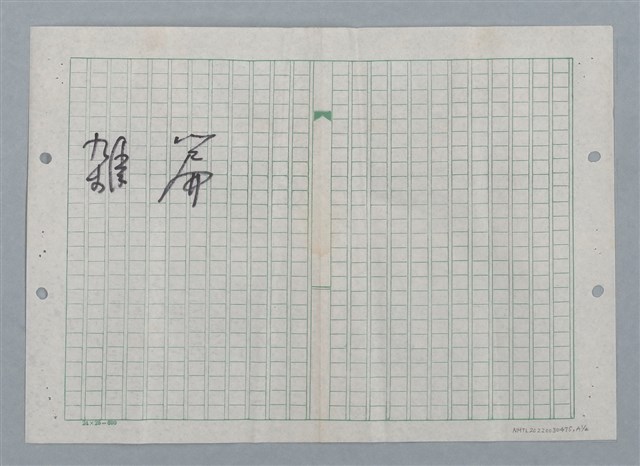 雜篇
24×25=600
NMTL20220030475,A1/6